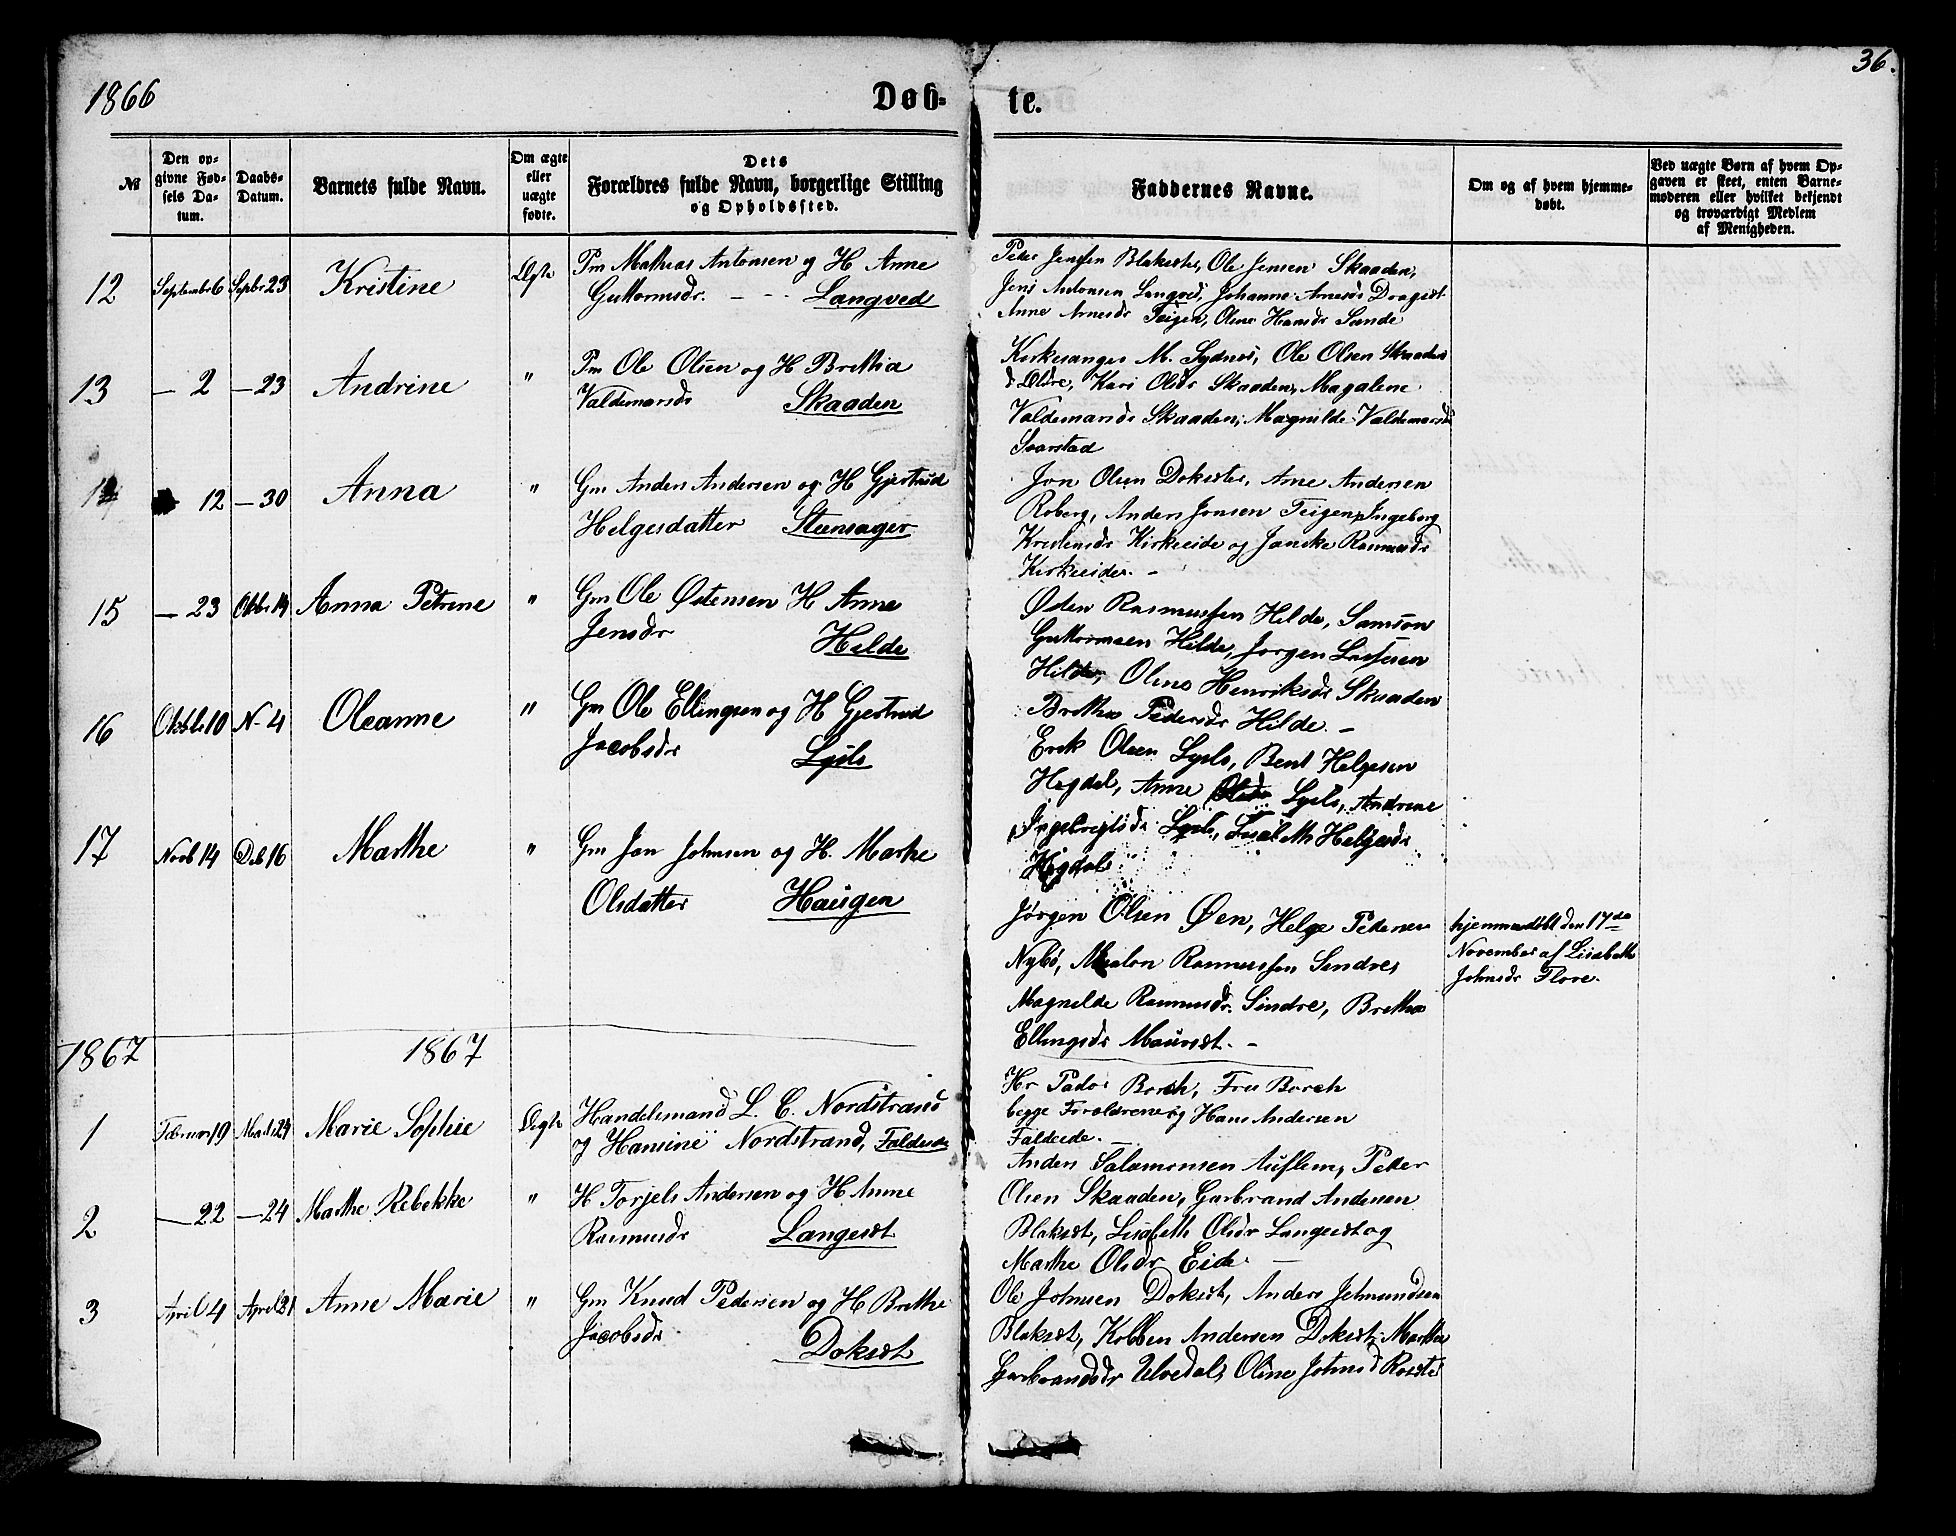 36.
1866 Døb- te.
№
Den op-
givne Fød-
sels Da-
tum.
Daabs-
Datum.
Barnets fulde Navn.
Om ægte
eller
uægte
fødte.
Dets
Forældres fulde Navn, borgerlige Stilling
og Opholdssted.
Faddernes Navne.
Om og af hvem hjemme-
døbt.
Ved uægte Børn af hvem Op-
gaven er skeet, enten Barne-
moderen eller hvilket bekjendt
og troværdigt Medlem
af Menigheden.
12 September 6 Septbr 23 Kristine Ægte Pm Mathias Antonsen og H Anne
Guttormsdr. - - - Langved
Peder Jensen Blakester, Ole Jensen Skaaden,
Jens Antonsen Langved, Johanne Arnesdr Dragesæt
Anne Arnesdr Teigen, Oline Hansdr Sande
13 — 2 — 23 Andrine " Pm Ole Olsen og H Brethia
Valdemarsdr Skaaden
Kirkesanger M. Sydnes, Ole Olsen Skaaden
d Ældre, Kari Olsdr Skaaden, Magalene
Valdemarsdr Skaaden, Magnilde Valdemarsdr
Svarstad
14 12 — 30 Anna " Gm Anders Andersen og H Gjertrud
Helgesdatter Steensager
Jon Olsen Doksæter, Arne Andersen
Roberg, Anders Jonsen Teigen, Ingeborg
Kristensdr Kirkeeide og Janike Rasmusdr
Kirkeeide. -
15 — 23 Oktbr 14 Anna Petrine " Gm Ole Østensen H Anne
Jensdr Hilde
Østen Rasmussen Hilde, Samson
Guttormsen Hilde, Jørgen Lassesen
Hilde, Oline Henriksdr Skaaden
Brethe Pedersdr Hilde. -
16 Oktbr 10 N- 4 Oleanne " Gm Ole Ellingsen og H Gjertrud
Jacobsdr Lyslo
Erik Olsen Lyslo, Bent Helgesen
Hegdal, Anne Olsdr Lyslo, Andrine
Ingebrigtsdr Lyslo, Lisabeth Helgesdr
Hegdal
17 Novb 14 Deb 16 Marthe " Gm Jon Johnsen og H. Marthe
Olsdatter Haugen
Jørgen Olsen Øen, Helge Pedersen
Nybø, Rasmussen Sindre,
Magnilde Rasmusdr. Sindre, Brethe
Ellingsdr Maursæt. -
hjemmedøbt den 17de
November af Lisabeth
Johnsdr Flore.
1867 1867
1 Februar 19 Marts 24 Marie Sophie Ægte Handelsmand L. C. Nordstrand
og Hansine Nordstrand, Faleide
Hr Pastor Borch, Fru Borch
begge Forældrene og Hans Andersen
Faleide. -
2 — 22 — 24 Marthe Rebekke " H Torjels Andersen og H Anne
Rasmusdr Langesæt
Anders Salamonsen Auflem, Peder
Olsen Skaaden, Garbrand Andersen
Blaksæt, Lisabeth Olsdr Langesæt og
Marthe Olsdr Eide. —
3 April 4 April 21 Anne Marie " Gm Knud Pedersen og H Brethe
Jacobsdr Doksæt
Ole Johnsen Doksæt, Anders Jetmundsen
Blaksæt, Kolben Andersen Doksæt, Marthe
Garbrandsdr Ulvedal, Oline Johnsd Rosæter